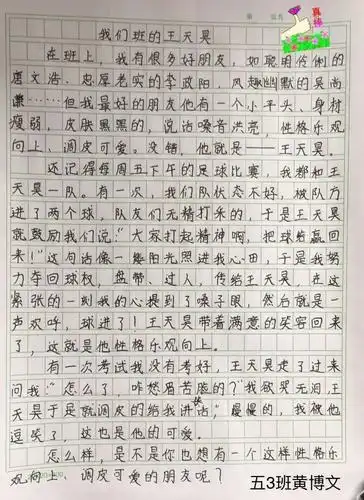 真棒
我们班的王天昊
在班上，我有很多好朋友，如聪明伶俐的
唐文浩、忠厚老实的李政阳，风趣幽默的吴尚
谦……但我最好的朋友他有一个小平头、身材
瘦弱，皮肤黑黑的，说话嗓音洪亮，性格乐观
向上、调皮可爱。没错，他就是——王天昊。
还记得每周五下午的足球比赛，我都和王
天昊一队。有一次，我们队状态不好，被队方
进了两个球，队友们无精打采的，于是王天昊
就鼓励我们说："大家打起精神啊，把球给赢回
来！"这句话像一缕阳光照进我心田，于是我努
力夺回球权，盘带、过人，传给王天昊，在这
紧张的一刻我的心提到了嗓子眼，然后就是一
声欢呼，球进了！王天昊带着满意的笑容回来
了，这就是他性格乐观向上。
有一次考试我没有考好，王天昊走了过来
问我："怎么了，咋愁眉苦脸的？"我欲哭无泪，王
天昊于是就调皮的给我讲笑话，慢慢的，我被他
逗笑了，这也是他的可爱。
怎么样，是不是你也想有一个这样性格乐
观向上、调皮可爱的朋友呢？
五3班黄博文